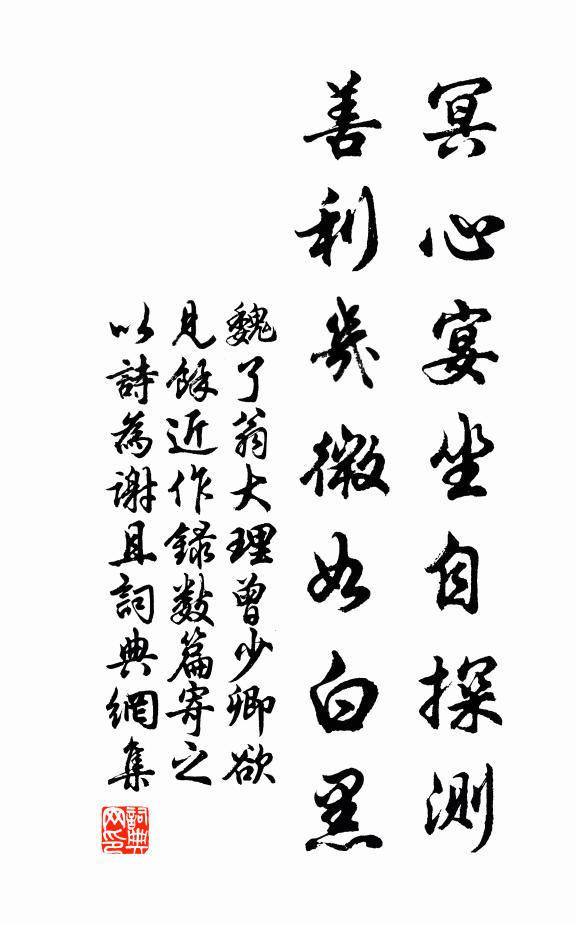 冥心宴坐自探測
善利幾微如白黑
魏了翁大理曾少卿欲
見餘近作録數篇寄之
以詩為謝且詞典網集
詞典
网印